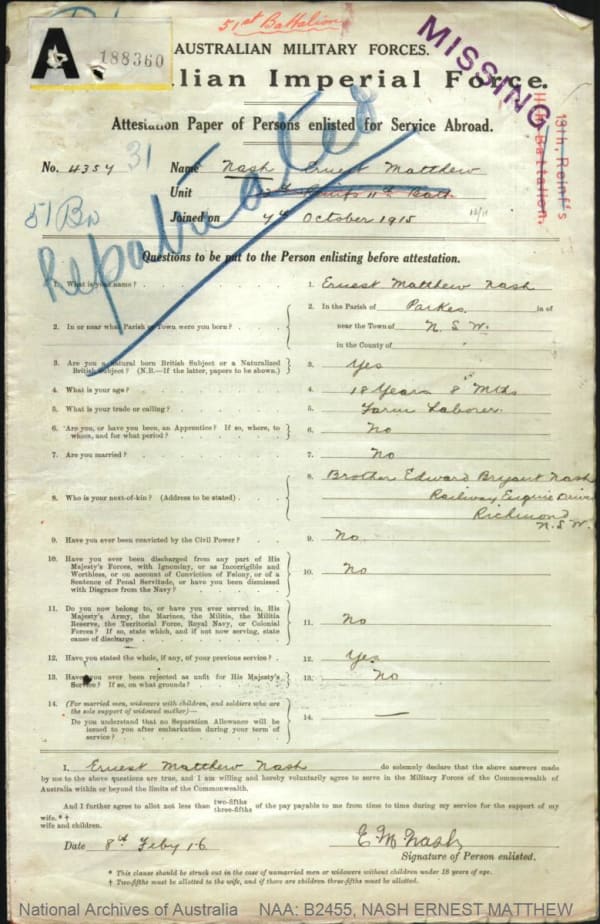 51st Battalion
A 188360
AUSTRALIAN MILITARY FORCES.
lian Imperial Force.
MISSING
Attestation Paper of Persons enlisted for Service Abroad.
13th, Reinf's
11th Battalion.
No. 4354 31 Name Nash Ernest Matthew
Unit 13th Reinfs 11th Batt.
51 Bn
Joined on 7th October 1915
Repatriated
Questions to be put to the Person enlisting before attestation.
1. What is your name? 1. Ernest Matthew Nash
2. In or near what Parish or Town were you born? 2. In the Parish of Parkes in or
near the Town of N.S.W.
in the County of
3. Are you a natural born British Subject or a Naturalized British Subject? (N.B.—If the latter, papers to be shown.) 3. Yes
4. What is your age? 4. 18 Years 8 Mths
5. What is your trade or calling? 5. Farm Laborer
6. Are you, or have you been, an Apprentice? If so, where, to whom, and for what period? 6. No
7. Are you married? 7. No
8. Who is your next-of-kin? (Address to be stated) 8. Brother Edward Bryant Nash
Railway Engine Driver
Richmond
N.S.W.
9. Have you ever been convicted by the Civil Power? 9. No.
10. Have you ever been discharged from any part of His
Majesty's Forces, with Ignominy, or as Incorrigible and
Worthless, or on account of Conviction of Felony, or of a
Sentence of Penal Servitude, or have you been dismissed
with Disgrace from the Navy? 10. No
11. Do you now belong to, or have you ever served in, His
Majesty's Army, the Marines, the Militia, the Militia
Reserve, the Territorial Force, Royal Navy, or Colonial
Forces? If so, state which, and if not now serving, state
cause of discharge 11. No
12. Have you stated the whole, if any, of your previous service? 12. Yes.
13. Have you ever been rejected as unfit for His Majesty's
Service? If so, on what grounds? 13. No
14. (For married men, widowers with children, and soldiers who are
the sole support of widowed mother)—
Do you understand that no Separation Allowance will be
issued to you after embarkation during your term of
service? 14. —
I, Ernest Matthew Nash do solemnly declare that the above answers made
by me to the above questions are true, and I am willing and hereby voluntarily agree to serve in the Military Forces of the Commonwealth of
Australia within or beyond the limits of the Commonwealth.
And I further agree to allot not less than two-fifths three-fifths of the pay payable to me from time to time during my service for the support of my
wife.*†
wife and children.
Date 8th Feby 16 E M Nash
Signature of Person enlisted.
* This clause should be struck out in the case of unmarried men or widowers without children under 18 years of age.
† Two-fifths must be allotted to the wife, and if there are children three-fifths must be allotted.
National Archives of Australia NAA: B2455, NASH ERNEST MATTHEW